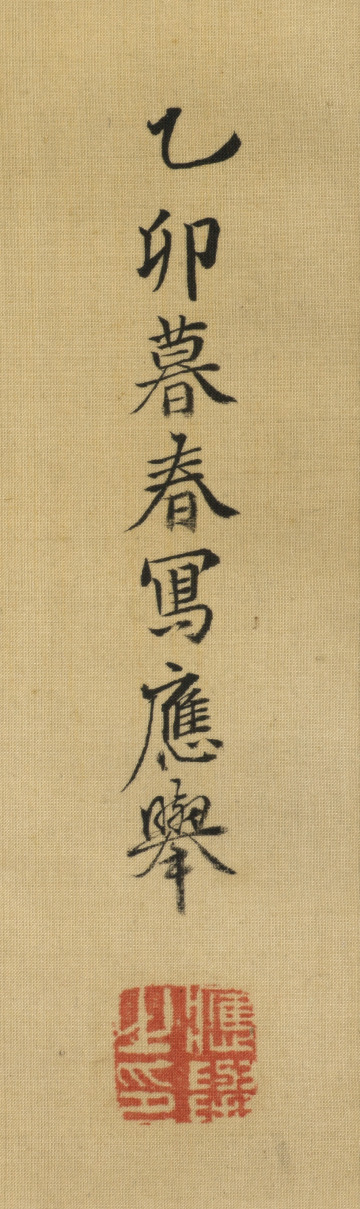 乙卯暮春寫應舉
應舉之印